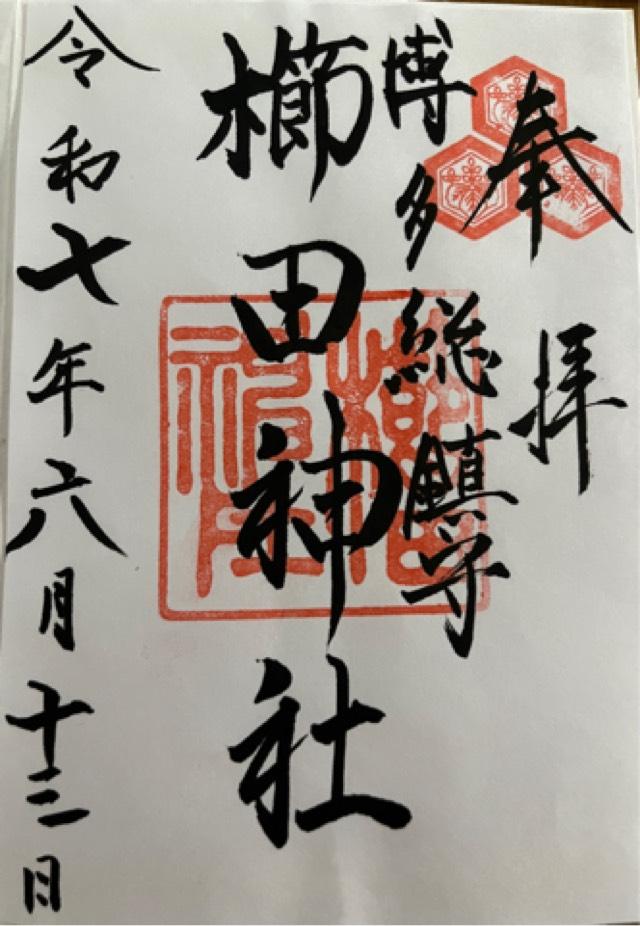 奉拝
博多総鎮守
櫛田神社
令和七年六月十三日